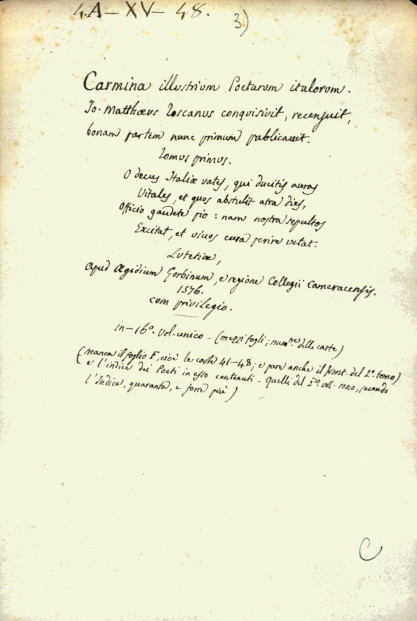 4A-XV-48.
3)
Carmina illustrium Poetarum italorum.
Io. Matthæus Toscanus conquisivit, recensuit,
bonam partem nunc primum publicavit.
Tomus primus.
O decus Italiæ vates, qui ducitis auras
Vitales, et quos abstulit atra dies,
Officio gaudete pio: nam nostra sepultos
Excitat, et vivos cura perire vetat.
Lutetiæ,
apud Ægidium Gorbinum, e regione Collegii Cameracensis.
1576.
cum privilegio.
in-16º. vol. unico - (mezzi fogli; num.ne delle carte)
(manca il foglio F. cioè le carte 41-48; e pare anche il front. del 2º. tomo)
e l'indice dei Poeti in esso contenuti - Quelli del 1º. vol. sono, secondo
l'Indice, quaranta, e forse più)
C